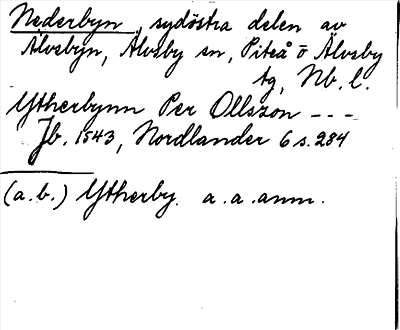 Nederbyn, sydöstra delen av
Älvsbyn, Älvsby sn, Piteå o Älvsby
tg, Nb. l.
Ytherbynn Per Ollszon - - -
Jb. 1543, Nordlander 6 s. 284
(a.b.) Ytherby. a.a. anm.